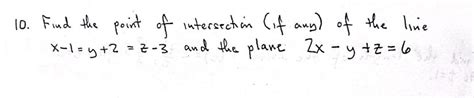 10. Find the point of intersection (if any) of the line
x-1 = y+2 = z-3 and the plane 2x - y + z = 6